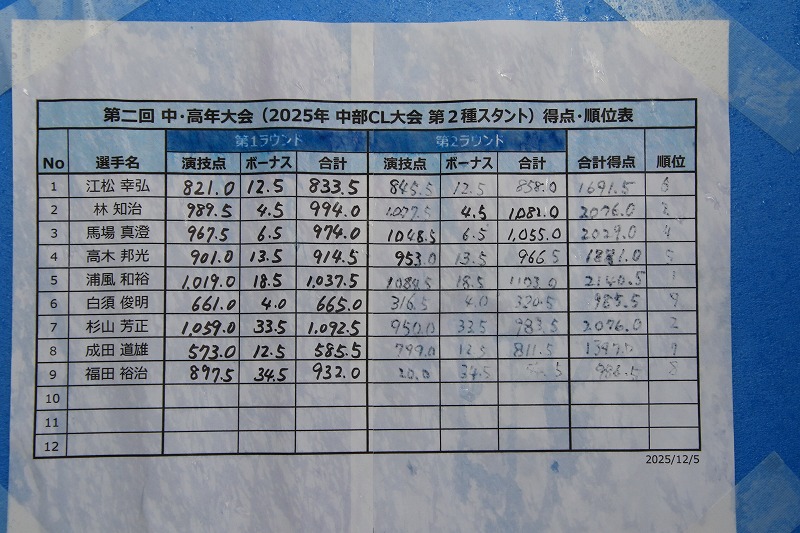 第二回 中・高年大会（2025年 中部CL大会 第２種スタント）得点・順位表
第1ラウンド 第2ラウンド
No 選手名 演技点 ボーナス 合計 演技点 ボーナス 合計 合計得点 順位
1 江松 幸弘 821.0 12.5 833.5 845.5 12.5 858.0 1691.5 6
2 林 知治 989.5 4.5 994.0 4.5 1,082.0 2076.0
3 馬場 真澄 967.5 6.5 974.0 1048.5 6.5 1,055.0 2029.0 4
4 高木 邦光 901.0 13.5 914.5 953.0 13.5 966.5 1881.0 5
5 浦風 和裕 1,019.0 18.5 1,037.5 1084.5 18.5 1103.0 2140.5 1
6 白須 俊明 661.0 4.0 665.0 316.5 4.0 320.5 985.5 9
7 杉山 芳正 1,059.0 33.5 1,092.5 950.0 33.5 983.5 2076.0 2
8 成田 道雄 573.0 12.5 585.5 799.0 12.5 811.5
9 福田 裕治 897.5 34.5 932.0 20.0 34.5 986.5 8
10
11
12
2025/12/5